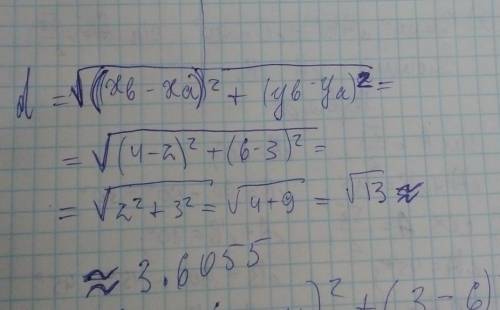 d = √((xb - xa)² + (yb - ya)² =
= √(4-2)² + (6-3)² =
= √2² + 3² = √4+9 = √13 ≈
≈ 3.6055
)² + (3 - 6)